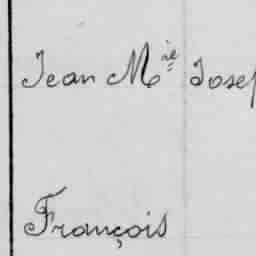 Jean Mie Josep
François